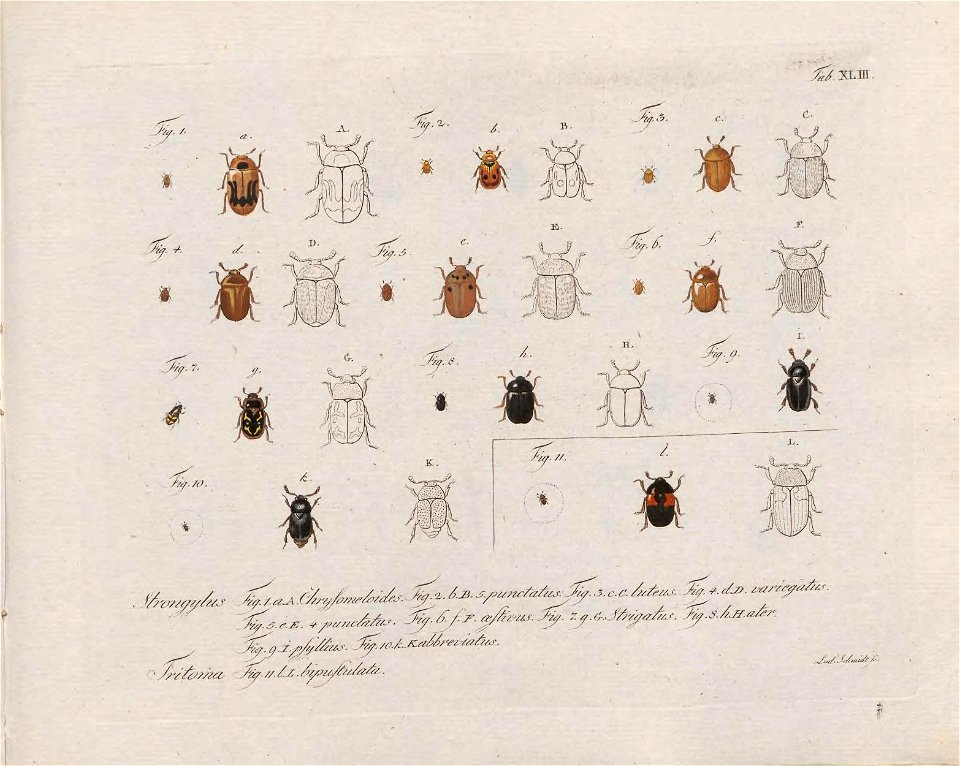 Tab. XLIII.
Fig. 1. a. A. Fig. 2. b. B. Fig. 3. c. C.
Fig. 4. d. D. Fig. 5. e. E. Fig. 6. f. F.
Fig. 7. g. G. Fig. 8. h. H. Fig. 9. I.
Fig. 10. k. K. Fig. 11. l. L.
Strongylus Fig. 1. a. A. Chrysomeloides. Fig. 2. b. B. 5. punctatus. Fig. 3. c. C. luteus. Fig. 4. d. D. variegatus.
Fig. 5. e. E. 4 punctatus. Fig. 6. f. F. æstivus. Fig. 7. g. G. Strigatus. Fig. 8. h. H. ater.
Fig. 9. I. psyllius. Fig. 10. k. K abbreviatus.
Tritoma Fig. 11. l. L. bipustulata.
Lud. Schmidt f.